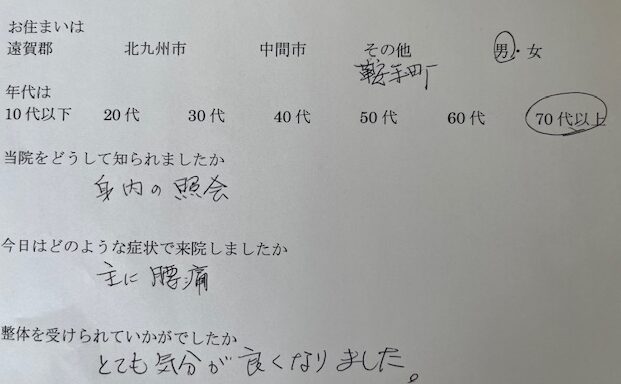 お住まいは
遠賀郡 北九州市 中間市 その他 男・女
鞍手町
年代は
10代以下 20代 30代 40代 50代 60代 70代以上
当院をどうして知られましたか
身内の照会
今日はどのような症状で来院しましたか
主に腰痛
整体を受けられていかがでしたか
とても気分が良くなりました。